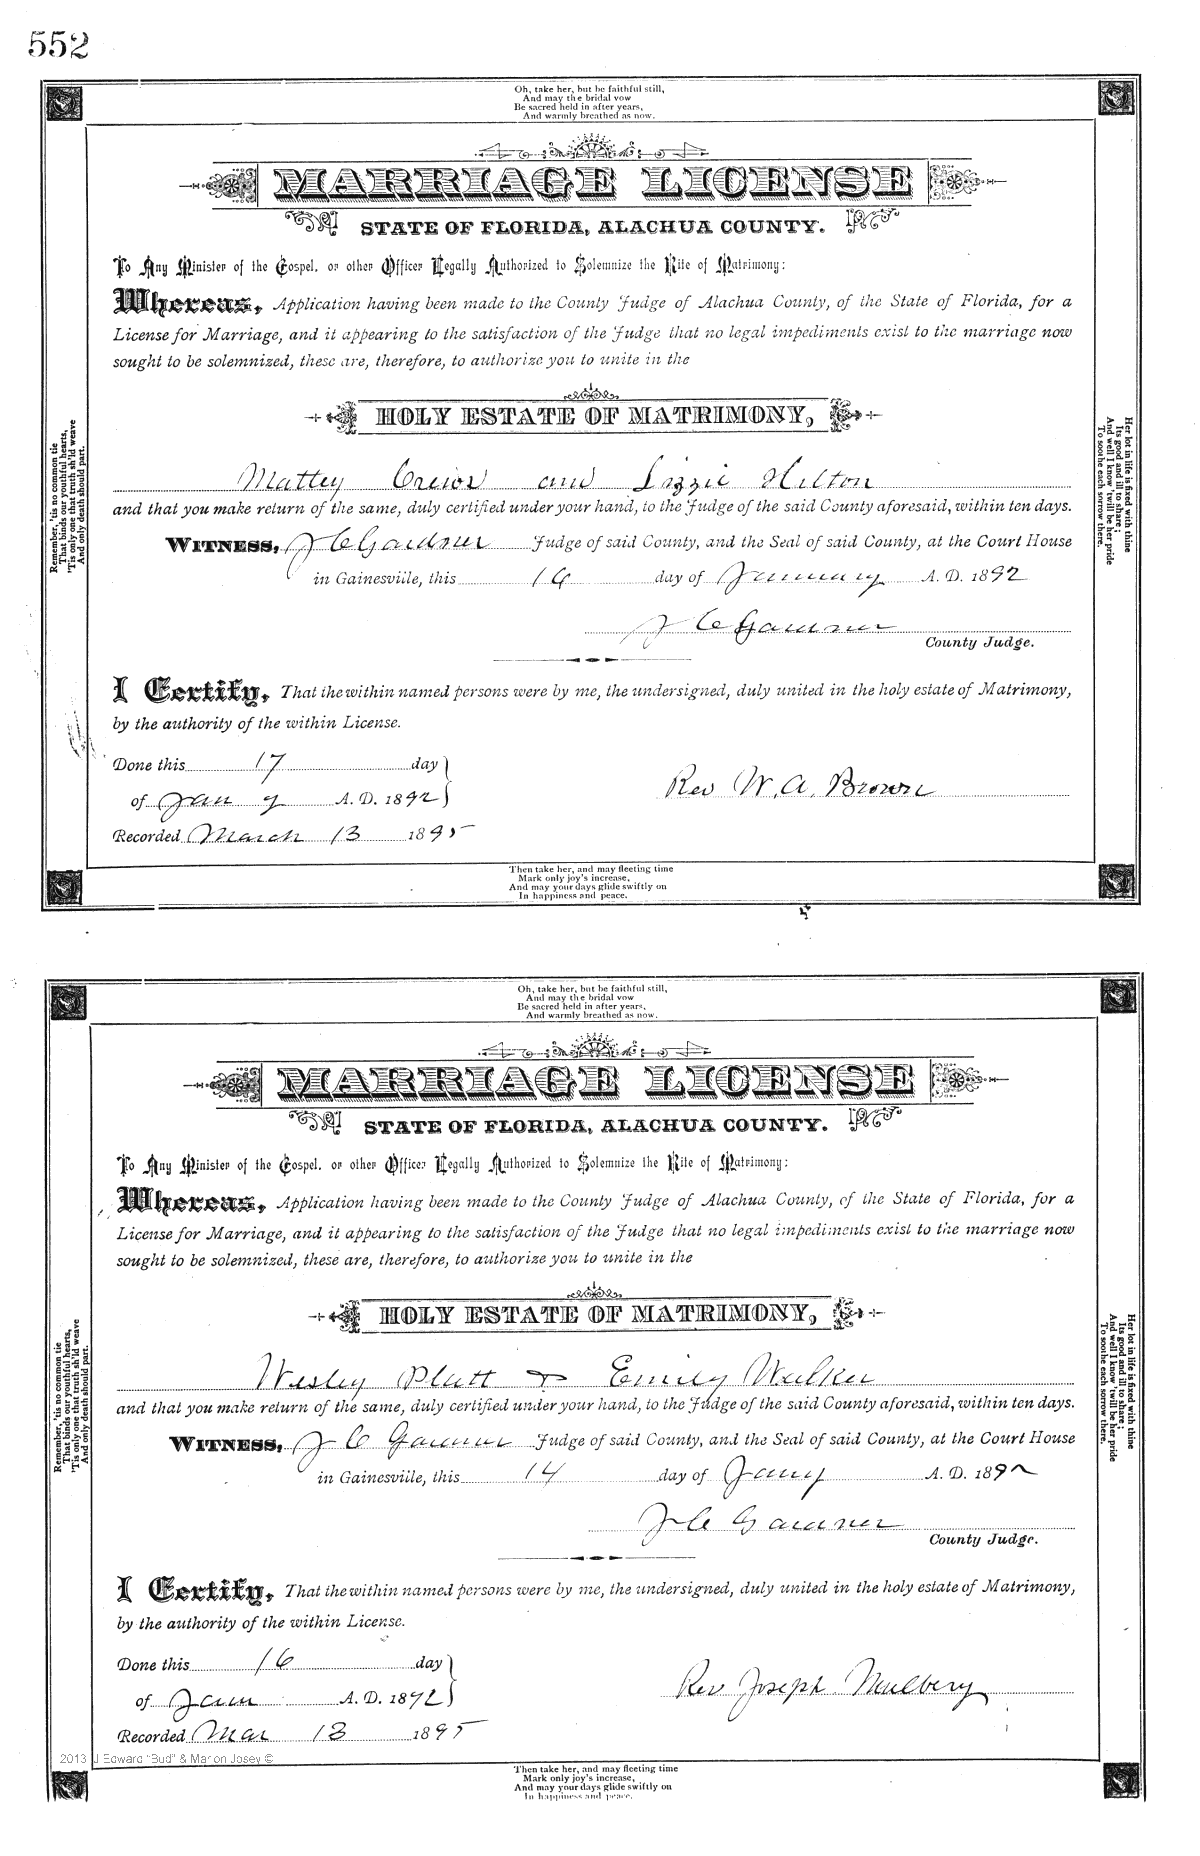 552
Oh, take her, but be faithful still,
And may the bridal vow
Be sacred held in after years,
And warmly breathed as now.
MARRIAGE LICENSE
STATE OF FLORIDA, ALACHUA COUNTY.
To Any Minister of the Gospel, or other Officer Legally Authorized to Solemnize the Rite of Matrimony:
Whereas, Application having been made to the County Judge of Alachua County, of the State of Florida, for a
License for Marriage, and it appearing to the satisfaction of the Judge that no legal impediments exist to the marriage now
sought to be solemnized, these are, therefore, to authorize you to unite in the
HOLY ESTATE OF MATRIMONY,
Mattey Crews and Lizzie Hilton
and that you make return of the same, duly certified under your hand, to the Judge of the said County aforesaid, within ten days.
WITNESS, J C Gardner Judge of said County, and the Seal of said County, at the Court House
in Gainesville, this 16 day of January A. D. 1892
J C Gardner
County Judge.
I Certify, That the within named persons were by me, the undersigned, duly united in the holy estate of Matrimony,
by the authority of the within License.
Done this 17 day
of Jany A. D. 1892
Rev W. A. Brown
Recorded March 13 1895
Remember, 'tis no common tie
That binds our youthful hearts,
'Tis only one that truth sh'ld weave
And only death should part.
Her lot in life is fixed with thine
Its good and ill to share;
And well I know 'twill be her pride
To soothe each sorrow there.
Then take her, and may fleeting time
Mark only joy's increase,
And may your days glide swiftly on
In happiness and peace.
Oh, take her, but be faithful still,
And may the bridal vow
Be sacred held in after years,
And warmly breathed as now.
MARRIAGE LICENSE
STATE OF FLORIDA, ALACHUA COUNTY.
To Any Minister of the Gospel, or other Officer Legally Authorized to Solemnize the Rite of Matrimony:
Whereas, Application having been made to the County Judge of Alachua County, of the State of Florida, for a
License for Marriage, and it appearing to the satisfaction of the Judge that no legal impediments exist to the marriage now
sought to be solemnized, these are, therefore, to authorize you to unite in the
HOLY ESTATE OF MATRIMONY,
Wesley Platt & Emily Walker
and that you make return of the same, duly certified under your hand, to the Judge of the said County aforesaid, within ten days.
WITNESS, J C Gardner Judge of said County, and the Seal of said County, at the Court House
in Gainesville, this 14 day of Jany A. D. 1892
J C Gardner
County Judge.
I Certify, That the within named persons were by me, the undersigned, duly united in the holy estate of Matrimony,
by the authority of the within License.
Done this 16 day
of Jany A. D. 1892
Rev Joseph Mulbery
Recorded Mar 13 1895
Remember, 'tis no common tie
That binds our youthful hearts,
'Tis only one that truth sh'ld weave
And only death should part.
Her lot in life is fixed with thine
Its good and ill to share;
And well I know 'twill be her pride
To soothe each sorrow there.
2013 J Edward "Bud" & Marion Josey ©
Then take her, and may fleeting time
Mark only joy's increase,
And may your days glide swiftly on
In happiness and peace.